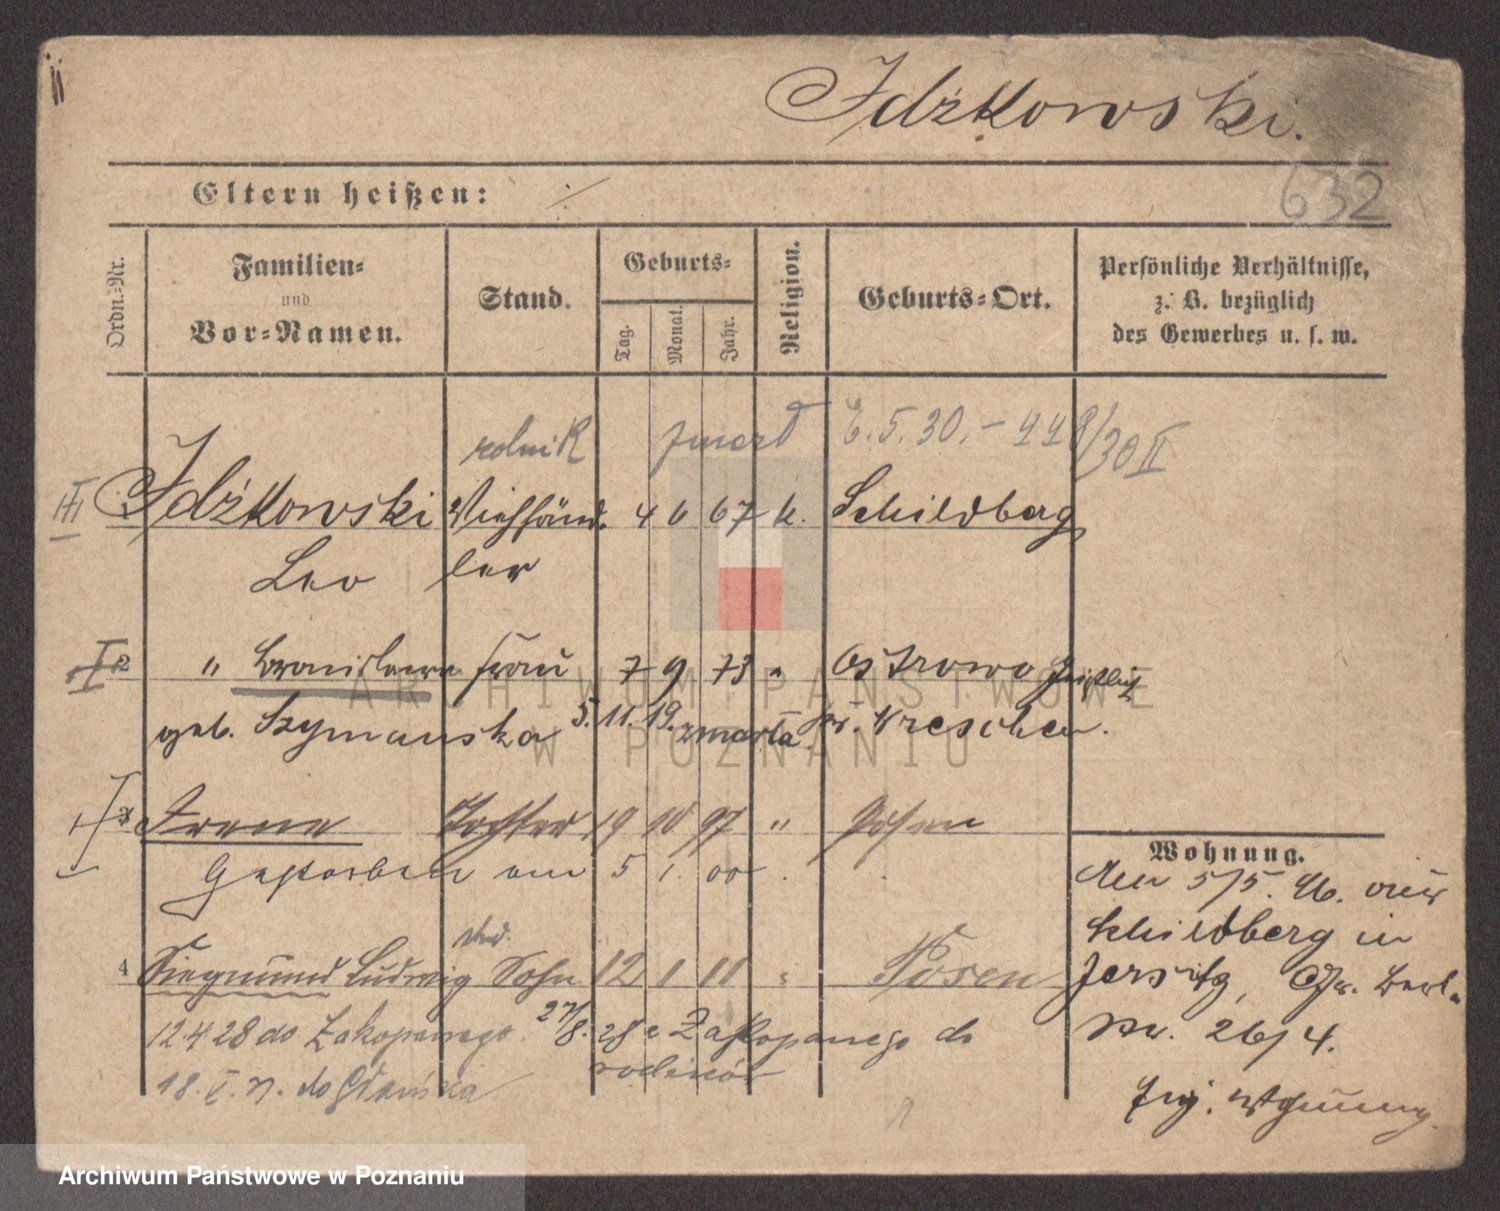 Idźkowski.
632
Eltern heißen: ./.
Ordn.-Nr.
Familien-
und
Vor-Namen.
Stand.
Geburts-
Tag.
Monat.
Jahr.
Religion.
Geburts-Ort.
Persönliche Verhältnisse,
z. B. bezüglich
des Gewerbes u. s. w.
rolnik zmarł 6.5.30.-
Idźkowski Viehhänd- 4 6 67 k. Schildberg
Leo ler
2 " Bronislawa Frau 7 9 73 " Ostrowo
geb. Szymanska 5.11.19. zmarła Kr. Wreschen.
3 Irene Tochter 19 10 97 " Posen
Gestorben am 5 1. 00.
4 Siegmund Ludwig Sohn 12 1 11 " Posen
12.4.28 do Zakopanego 27/8. 28 z Zakopanego do
rodziców
18. V. do Gdańska
Wohnung.
Den 5/5. 96. aus
Schildberg in
Jersitz, Gr. Berl.
Str. 26/4.
ARCHIWUM PAŃSTWOWE
W POZNANIU
Archiwum Państwowe w Poznaniu